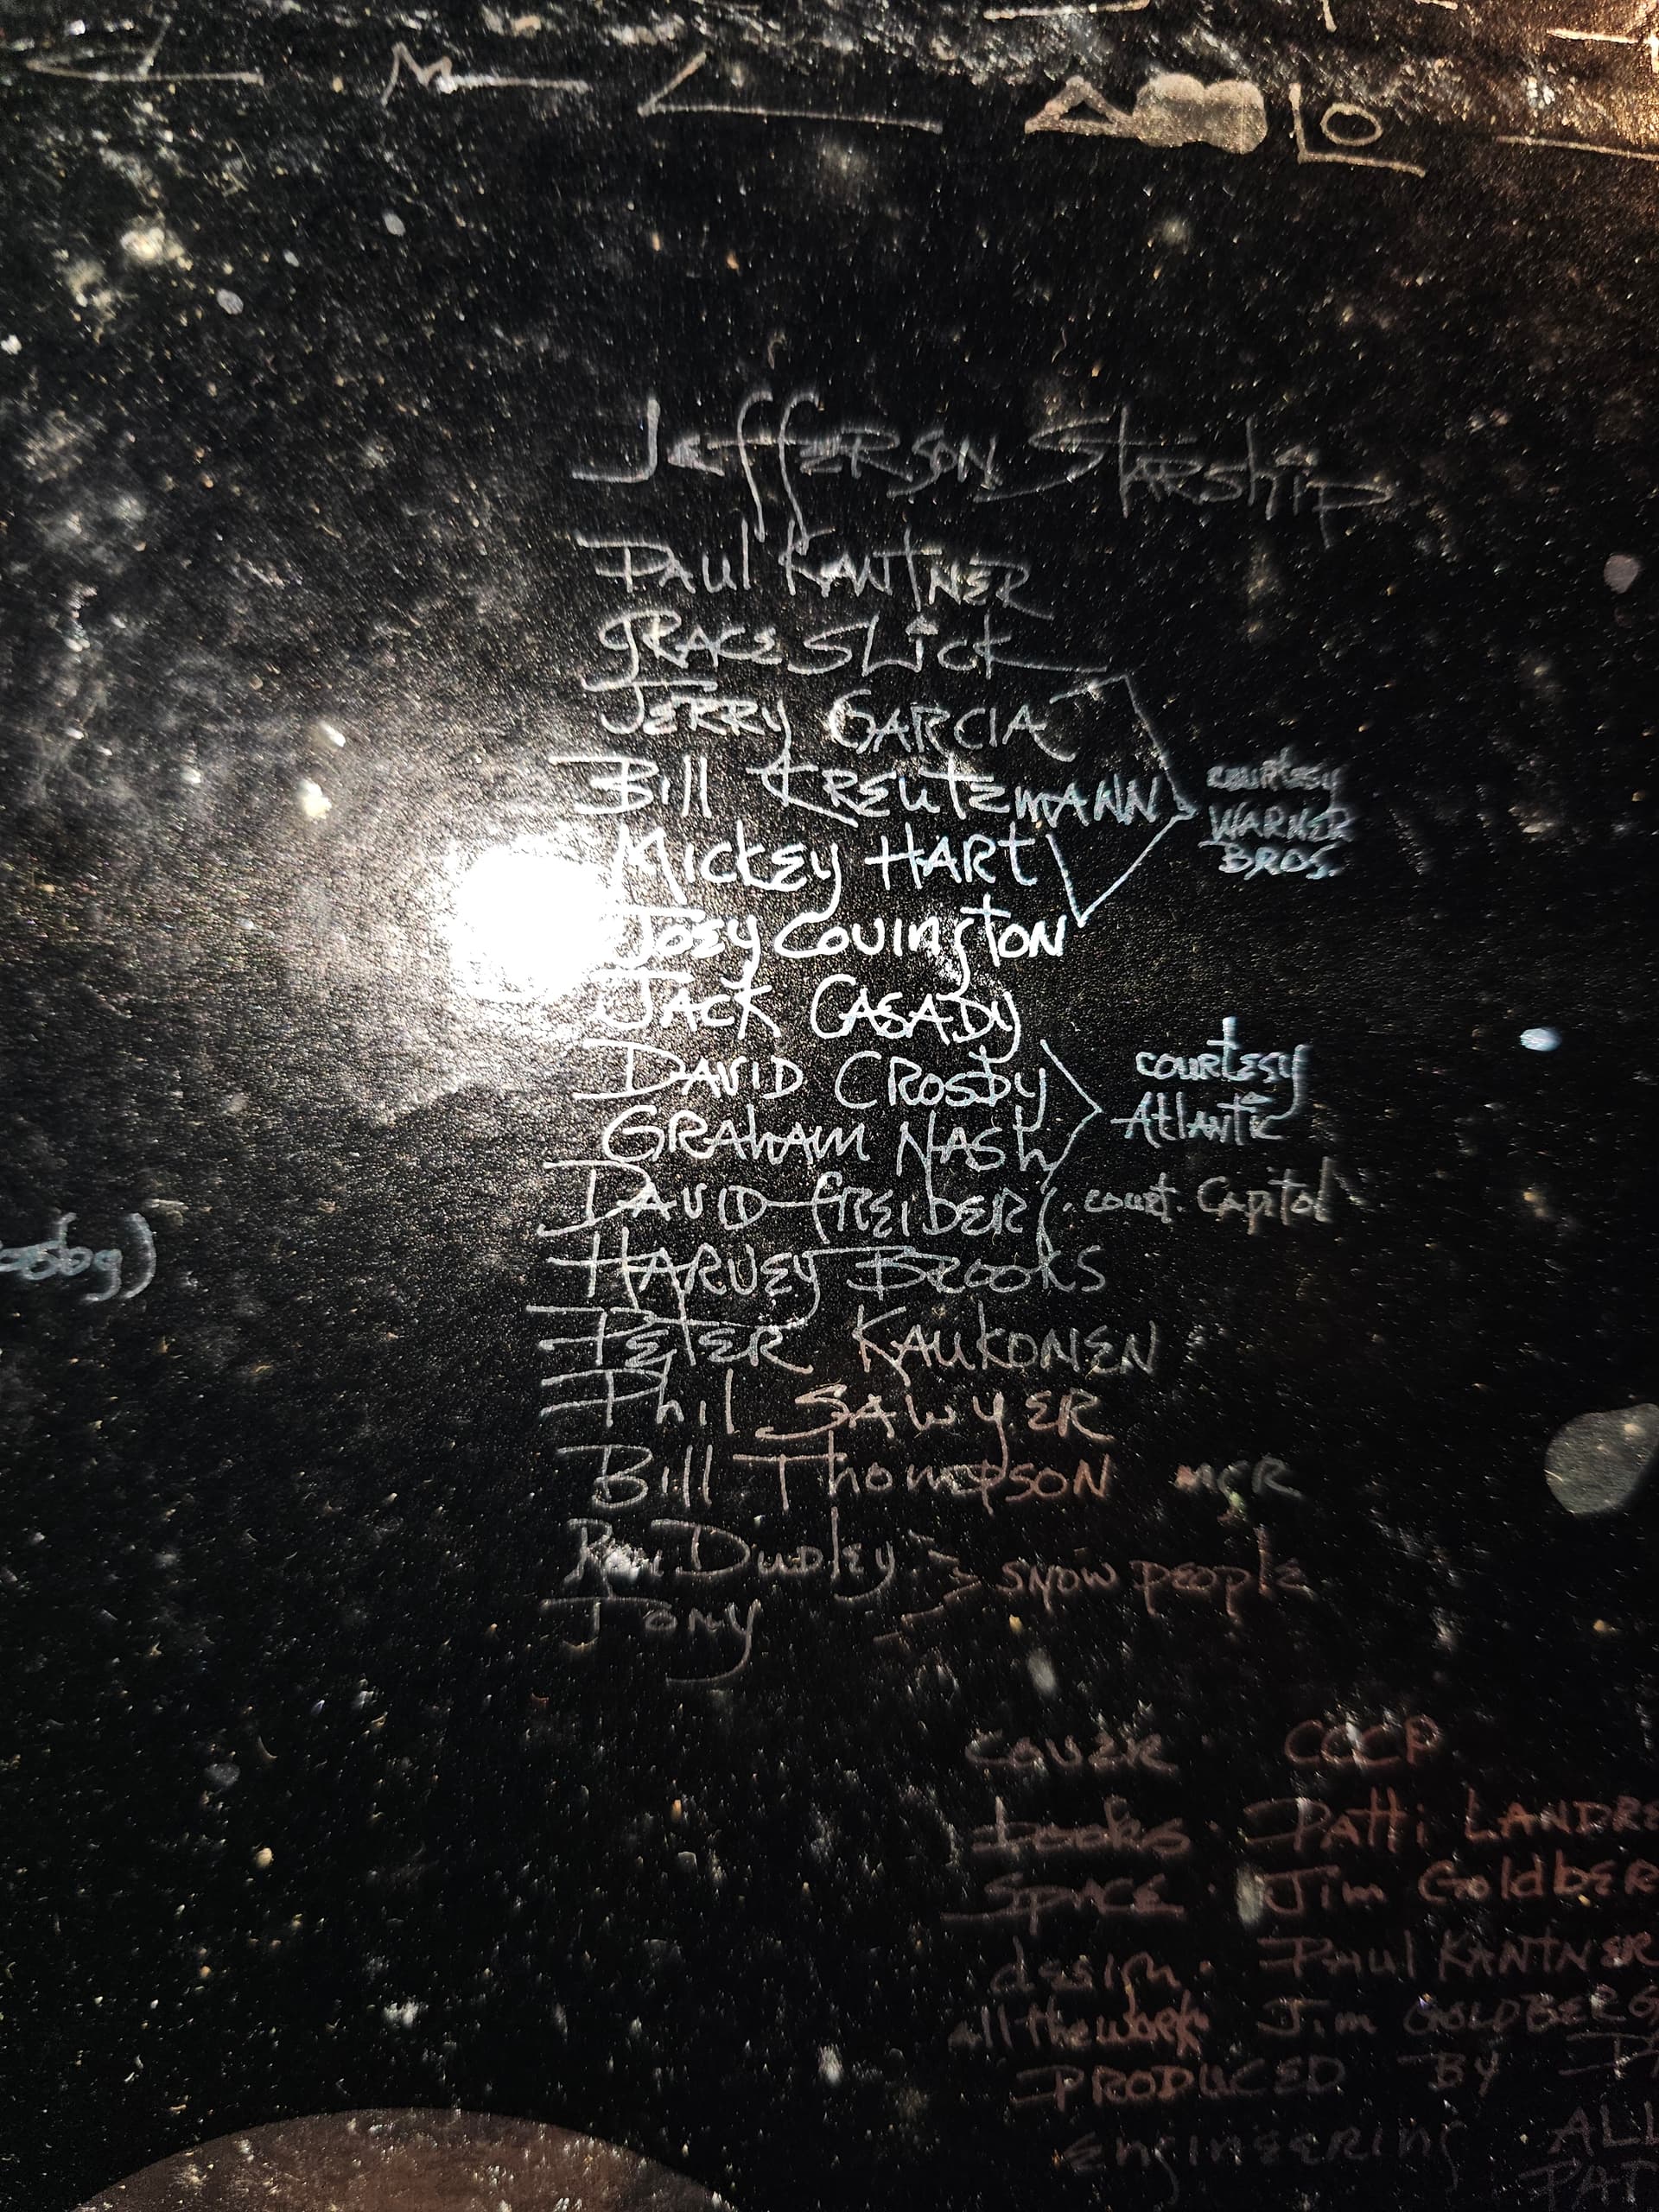 Jefferson Starship
Paul Kantner
Grace Slick
Jerry Garcia
Bill Kreutzmann
courtesy
Warner
Bros.
Mickey Hart
Joey Covington
Jack Casady
David Crosby
courtesy
Graham Nash
Atlantic
David Freiberg court. Capitol
osby)
Harvey Brooks
Peter Kaukonen
Phil Sawyer
Bill Thompson MGR
Dudley snow people
Tony
Cover CCCP
books Patti LANDRE
Space Jim Goldber
design Paul Kantner
all the work Jim Goldberg
PRODUCED BY
engineering